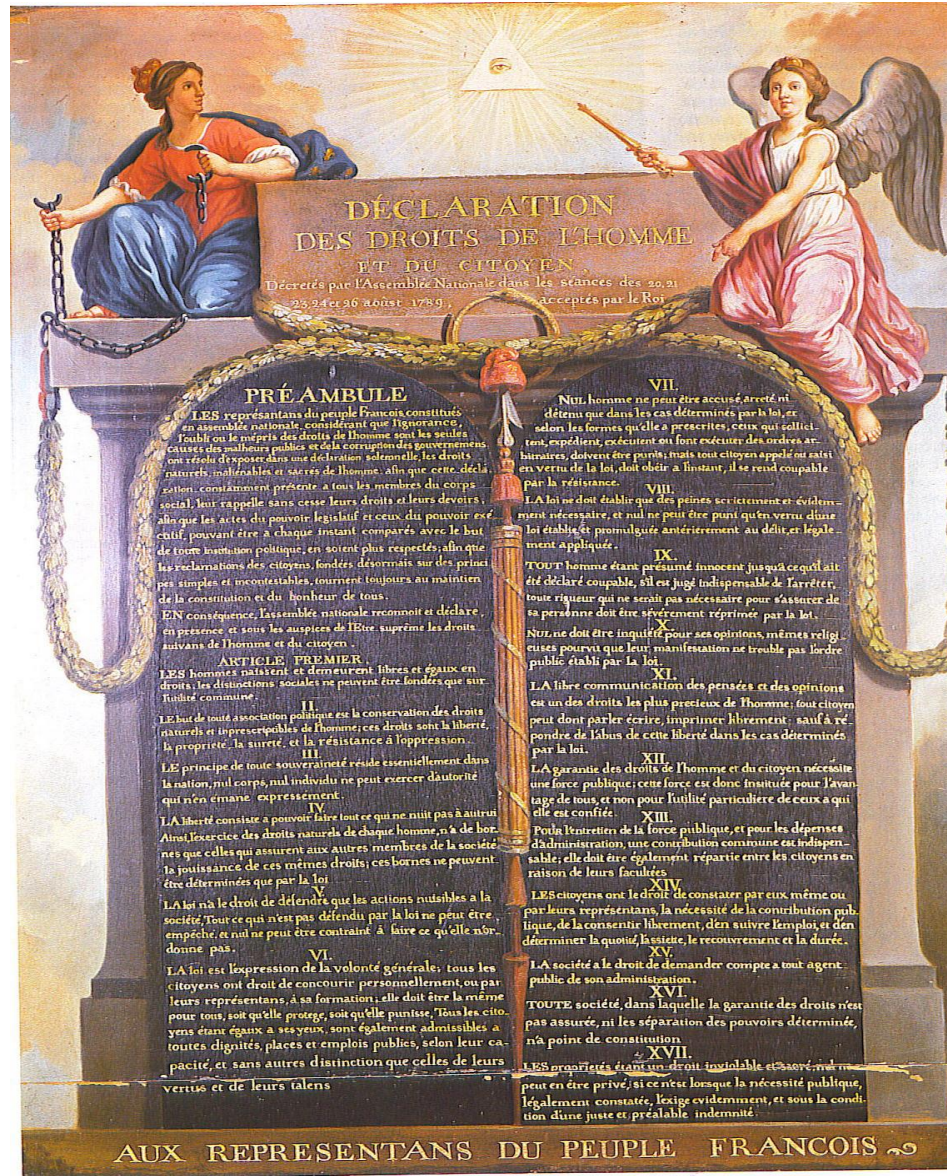 DÉCLARATION
DES DROITS DE L'HOMME
ET DU CITOYEN
Décretés par l'Assemblée Nationale dans les séances des 20, 21
23, 24 et 26 aoûst 1789, acceptés par le Roi
PRÉAMBULE
LES représantans du peuple François, constitués
en assemblée nationale, considérant que l'ignorance,
l'oubli ou le mépris des droits de l'homme sont les seules
causes des malheurs publics et de la corruption des gouvernemens
ont résolu d'exposer dans une déclaration solemnelle, les droits
naturels, inaliénables et sacrés de l'homme, afin que cette décla
ration, constamment présente a tous les membres du corps
social, leur rappelle sans cesse leurs droits et leurs devoirs,
afin que les actes du pouvoir legislatif et ceux du pouvoir exé
cutif, pouvant être à chaque instant comparés avec le but
de toute institution politique, en soient plus respectés; afin que
les reclamations des citoyens, fondées désormais sur des princi
pes simples et incontestables, tournent toujours au maintien
de la constitution et du bonheur de tous.
EN conséquence, l'assemblée nationale reconnoît et déclare,
en presence et sous les auspices de l'Etre suprême les droits
suivans de l'homme et du citoyen.
ARTICLE PREMIER.
LES hommes naissent et demeurent libres et égaux en
droits; les distinctions sociales ne peuvent être fondées que sur
l'utilité commune
II.
LE but de toute association politique est la conservation des droits
naturels et inprescriptibles de l'homme; ces droits sont la liberté,
la propriété, la sureté, et la résistance à l'oppression.
III.
LE principe de toute souveraineté réside essentiellement dans
la nation, nul corps, nul individu ne peut exercer d'autorité
qui n'en émane expressement.
IV.
LA liberté consiste a pouvoir faire tout ce qui ne nuit pas à autrui
Ainsi, l'exercice des droits naturels de chaque homme, n'a de bor-
nes que celles qui assurent aux autres membres de la société
la jouissance de ces mêmes droits; ces bornes ne peuvent
être déterminées que par la loi
V.
LA loi n'a le droit de défendre que les actions nuisibles a la
société, Tout ce qui n'est pas défendu par la loi ne peut être
empêché, et nul ne peut être contraint à faire ce qu'elle n'or-
donne pas.
VI.
LA loi est l'expression de la volonté générale; tous les
citoyens ont droit de concourir personnellement, ou par
leurs représentans, à sa formation; elle doit être la même
pour tous, soit qu'elle protege, soit qu'elle punisse, Tous les cito-
yens étant égaux a ses yeux, sont également admissibles a
toutes dignités, places et emplois publics, selon leur ca-
pacité, et sans autres distinction que celles de leurs
vertus et de leurs talens
VII.
NUL homme ne peut être accusé, arreté ni
détenu que dans les cas déterminés par la loi, et
selon les formes qu'elle a prescrites, ceux qui sollici-
tent, expédient, exécutent ou font exécuter des ordres ar-
bitraires, doivent être punis; mais tout citoyen appelé ou saisi
en vertu de la loi, doit obéir a l'instant, il se rend coupable
par la résistance.
VIII.
LA loi ne doit établir que des peines strictement et évidem-
ment nécessaire, et nul ne peut être puni qu'en vertu d'une
loi établie et promulguée antérierement au délit, et légale-
ment appliquée.
IX.
TOUT homme étant présumé innocent jusqu'à ce qu'il ait
été déclaré coupable, s'il est jugé indispensable de l'arrêter,
toute rigueur qui ne serait pas nécessaire pour s'assurer de
sa personne doit être sévèrement réprimée par la loi.
X.
NUL ne doit être inquiété pour ses opinions, mêmes religi-
euses pourvu que leur manifestation ne trouble pas l'ordre
public établi par la loi.
XI.
LA libre communication des pensées et des opinions
est un des droits les plus precieux de l'homme; tout citoyen
peut dont parler écrire, imprimer librement; sauf à ré-
pondre de l'abus de cette liberté dans les cas déterminés
par la loi.
XII.
LA garantie des droits de l'homme et du citoyen nécessite
une force publique; cette force est donc instituée pour l'avan-
tage de tous, et non pour l'utilité particuliere de ceux a qui
elle est confiée.
XIII.
POUR l'entretien de la force publique, et pour les dépenses
d'administration, une contribution commune est indispen-
sable; elle doit être également répartie entre les citoyens en
raison de leurs facultées
XIV.
LES citoyens ont le droit de constater par eux même ou
par leurs représentans, la nécessité de la contribution pub-
lique, de la consentir librement, d'en suivre l'emploi, et d'en
déterminer la quotité, l'assiette, le recouvrement et la durée.
XV.
LA société a le droit de demander compte a tout agent
public de son administration.
XVI.
TOUTE société, dans laquelle la garantie des droits n'est
pas assurée, ni les séparation des pouvoirs déterminée,
n'a point de constitution
XVII.
LES proprietés étant un droit inviolable et sacré, nul ne
peut en être privé, si ce n'est lorsque la nécessité publique,
légalement constatée, l'exige evidemment, et sous la condi-
tion d'une juste et préalable indemnité.
AUX REPRESENTANS DU PEUPLE FRANCOIS